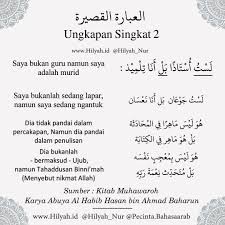 العبارة القصيرة
Ungkapan Singkat 2
www.Hilyah.id @Hilyah_Nur
Saya bukan guru namun saya
adalah murid
لَسْتُ أُسْتَاذًا بَلْ أَنَا تِلْمِيذ :
Saya bukanlah sedang lapar,
namun saya sedang ngantuk
لَسْتُ جَوْعَان بَلْ أَنَا نَعْسَان
Dia tidak pandai dalam
percakapan, Namun dia pandai
dalam penulisan
هُوَ لَيْسَ مَاهِرًا فِي الْمُحَادَثَة
بَلْ هُوَ مَاهِر فِي الْكِتَابَة
Dia bukanlah
- bermaksud - Ujub,
namun Tahaddusan Binni'mah
(Menyebut nikmat Allah)
هُوَ لَيْسَ بِمُعْجِبٍ نَفْسَه
بَلْ مُتَحَدِّث بِنِعْمَة رَبِّه
Sumber : Kitab Muhawaroh
Karya Abuya Al Habib Hasan bin Ahmad Baharun
www.Hilyah.id @Hilyah_Nur @Pecinta.Bahasaarab